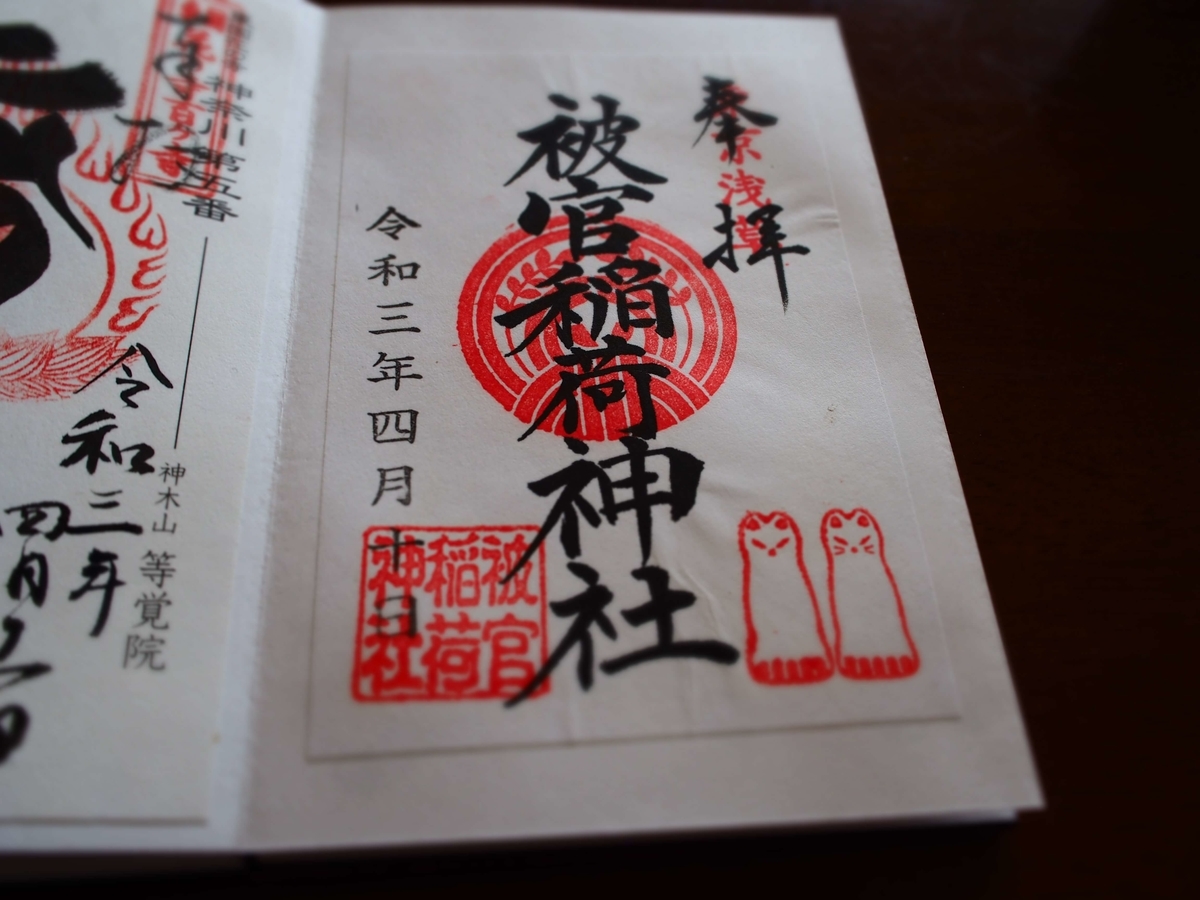 奉拝
京浅草
被官稲荷神社
令和三年四月十日
被官
稲荷
神社
神奈川第五番
神木山 等覚院
令和三年
四月